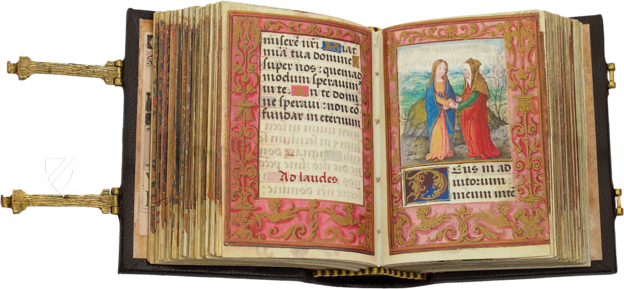 miserere nr̄i fiat
mia tua domine
super nos : quemad
modum speravim
us in te. In te domi
ne speravi : non cō
fundar in eternum
Ad laudes
Deus in ad
iutorium
meum intē